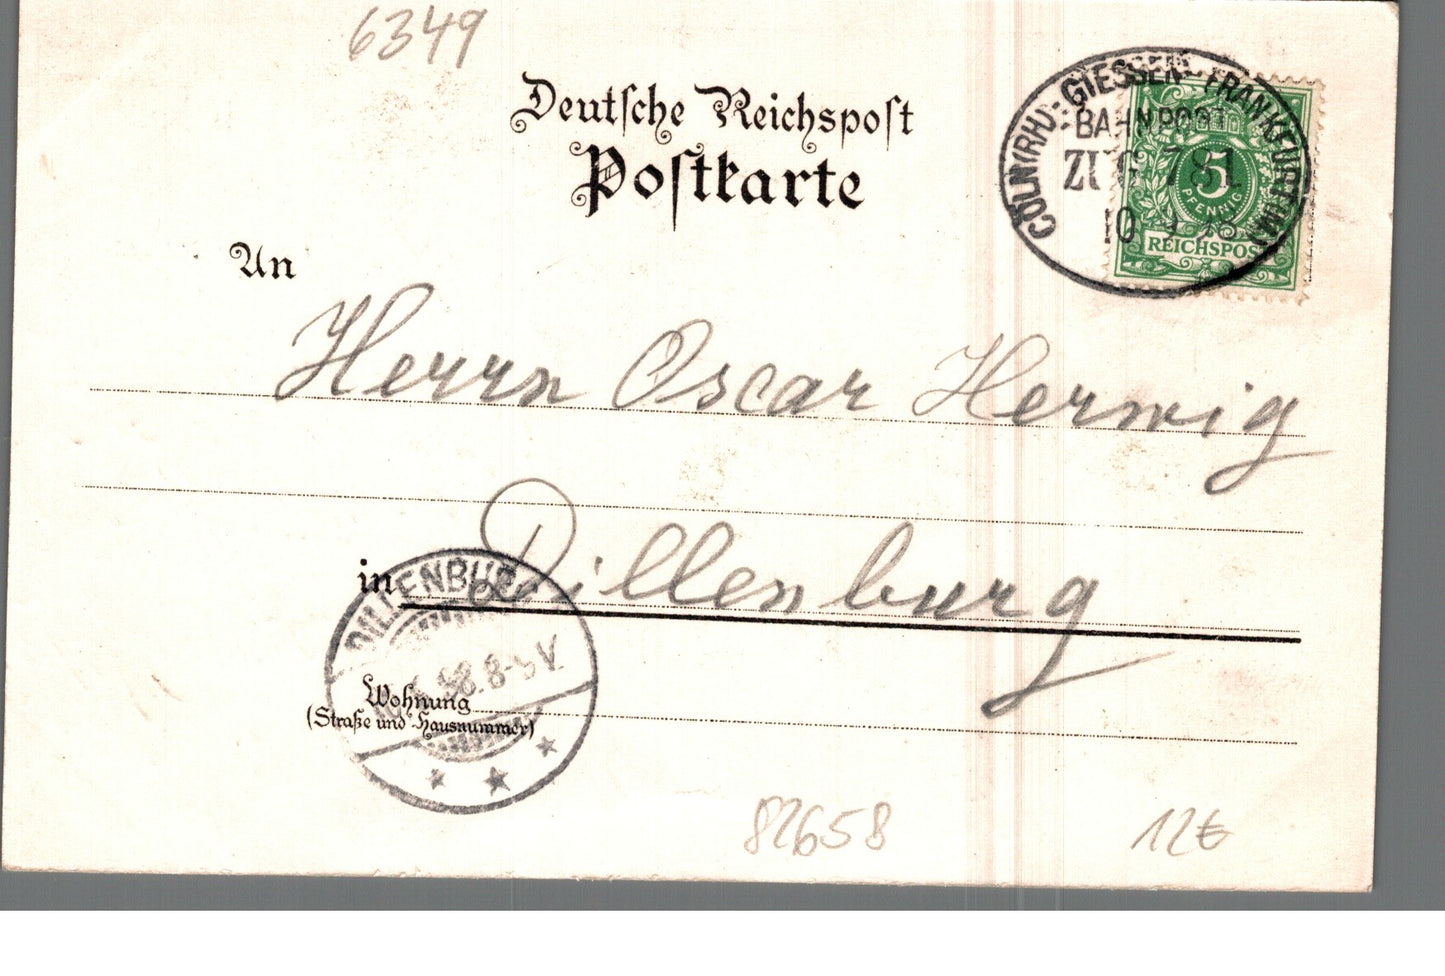 6349
Deutsche Reichspost
Postkarte
CÖLN (RH.)-GIESSEN-FRANKFURT (M)
BAHNPOST
ZUG 781
10 9 98
5
PFENNIG
REICHSPOST
An
Herrn Oscar Herwig
in Dillenburg
DILLENBURG
98. 8-9 V.
Wohnung
(Straße und Hausnummer)
82658
12€